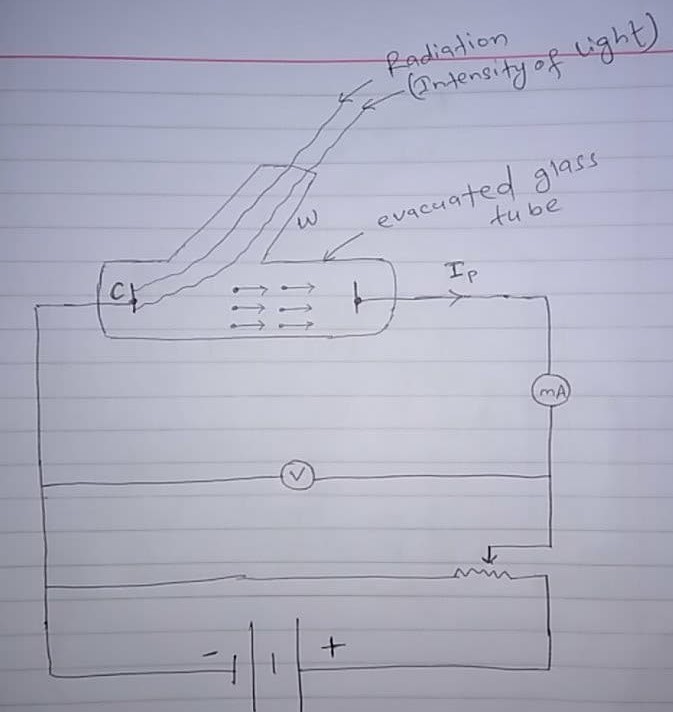 Radiation
(Intensity of light)
evacuated glass
tube
W
C
Ip
mA
V
- +